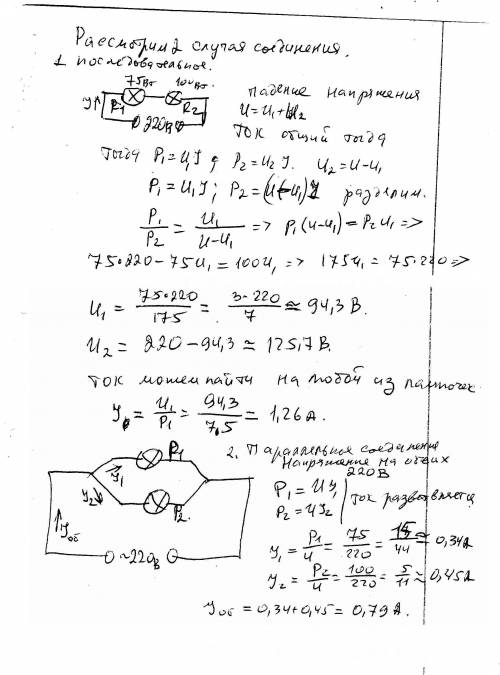 Рассмотрим 2 случая соединения.
1 последовательное.
75Вт 100Вт.
J↑ P1 P2
220В
падение напряжения
U=U1+U2
ток общий тогда
тогда P1=U1J; P2=U2J. U2=U-U1
P1=U1J; P2=(U-U1)J разделим.
P1/P2 = U1/(U-U1) => P1(U-U1)=P2U1 =>
75•220-75U1=100U1 => 175U1=75•220 =>
U1 = 75•220/175 = 3•220/7 ≃ 94,3 В.
U2 = 220-94,3 ≃ 125,7 В.
ток можем найти на любой из лампочек
J = U1/P1 = 94,3/7,5 = 1,26 А.
2. Параллельное соединение
напряжение на обеих
220В
P1
J1
J2
P2
Jоб
~220В
P1=UJ1
P2=UJ2
ток разветвляется
J1 = P1/U = 75/220 = 15/44 ≃ 0,34А
J2 = P2/U = 100/220 = 5/11 ≃ 0,45А
Jоб = 0,34+0,45 = 0,79 А.